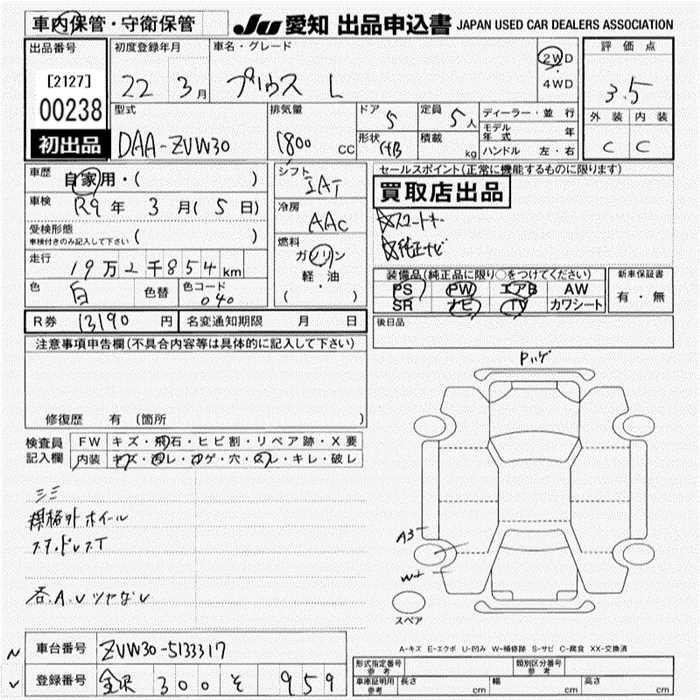 車内保管・守衛保管
JU 愛知 出品申込書 JAPAN USED CAR DEALERS ASSOCIATION
出品番号
[2127]
00238
初出品
初度登録年月
22 3月
車名・グレード
プリウス L
2WD
4WD
評価点
3.5
外装 内装
C C
型式
DAA-ZVW30
排気量
1800 CC
ドア
5
定員
5人
形状
HB
積載
kg
ディーラー・並行
モデル年式 年
ハンドル 左・右
車歴
自家用・( )
車検
R9年 3月(5日)
受検形態
車検付きのみ記入して下さい ( )
走行
19万2千854km
色
白 色替
色コード
040
シフト
IAT
冷房
AAC
燃料
ガソリン
軽・油
( )
セールスポイント(正常に機能するものに限ります)
買取店出品
スマートキー
純正ナビ
装備品(純正品に限り○をつけてください)
PS PW エアB AW
SR ナビ TV カワシート
新車保証書
有・無
R券 13190円
名変通知期限 月 日
後日品
注意事項申告欄(不具合内容等は具体的に記入して下さい)
修復歴 有 (箇所 )
検査員
記入欄
FW キズ・飛石・ヒビ割・リペア跡・X要
内装 キズ・汚レ・コゲ・穴・スレ・キレ・破レ
規格外ホイール
Pハゲ
A3
W2
スペア
A-キズ E-エクボ U-凹み W-補修跡 S-サビ C-腐食 XX-交換済
車台番号 ZVW30-5133317
登録番号 金沢 300 そ 959
形式指定番号
参考
類別区分番号
参考
車庫証明用
参考
長さ cm 幅 cm 高さ cm